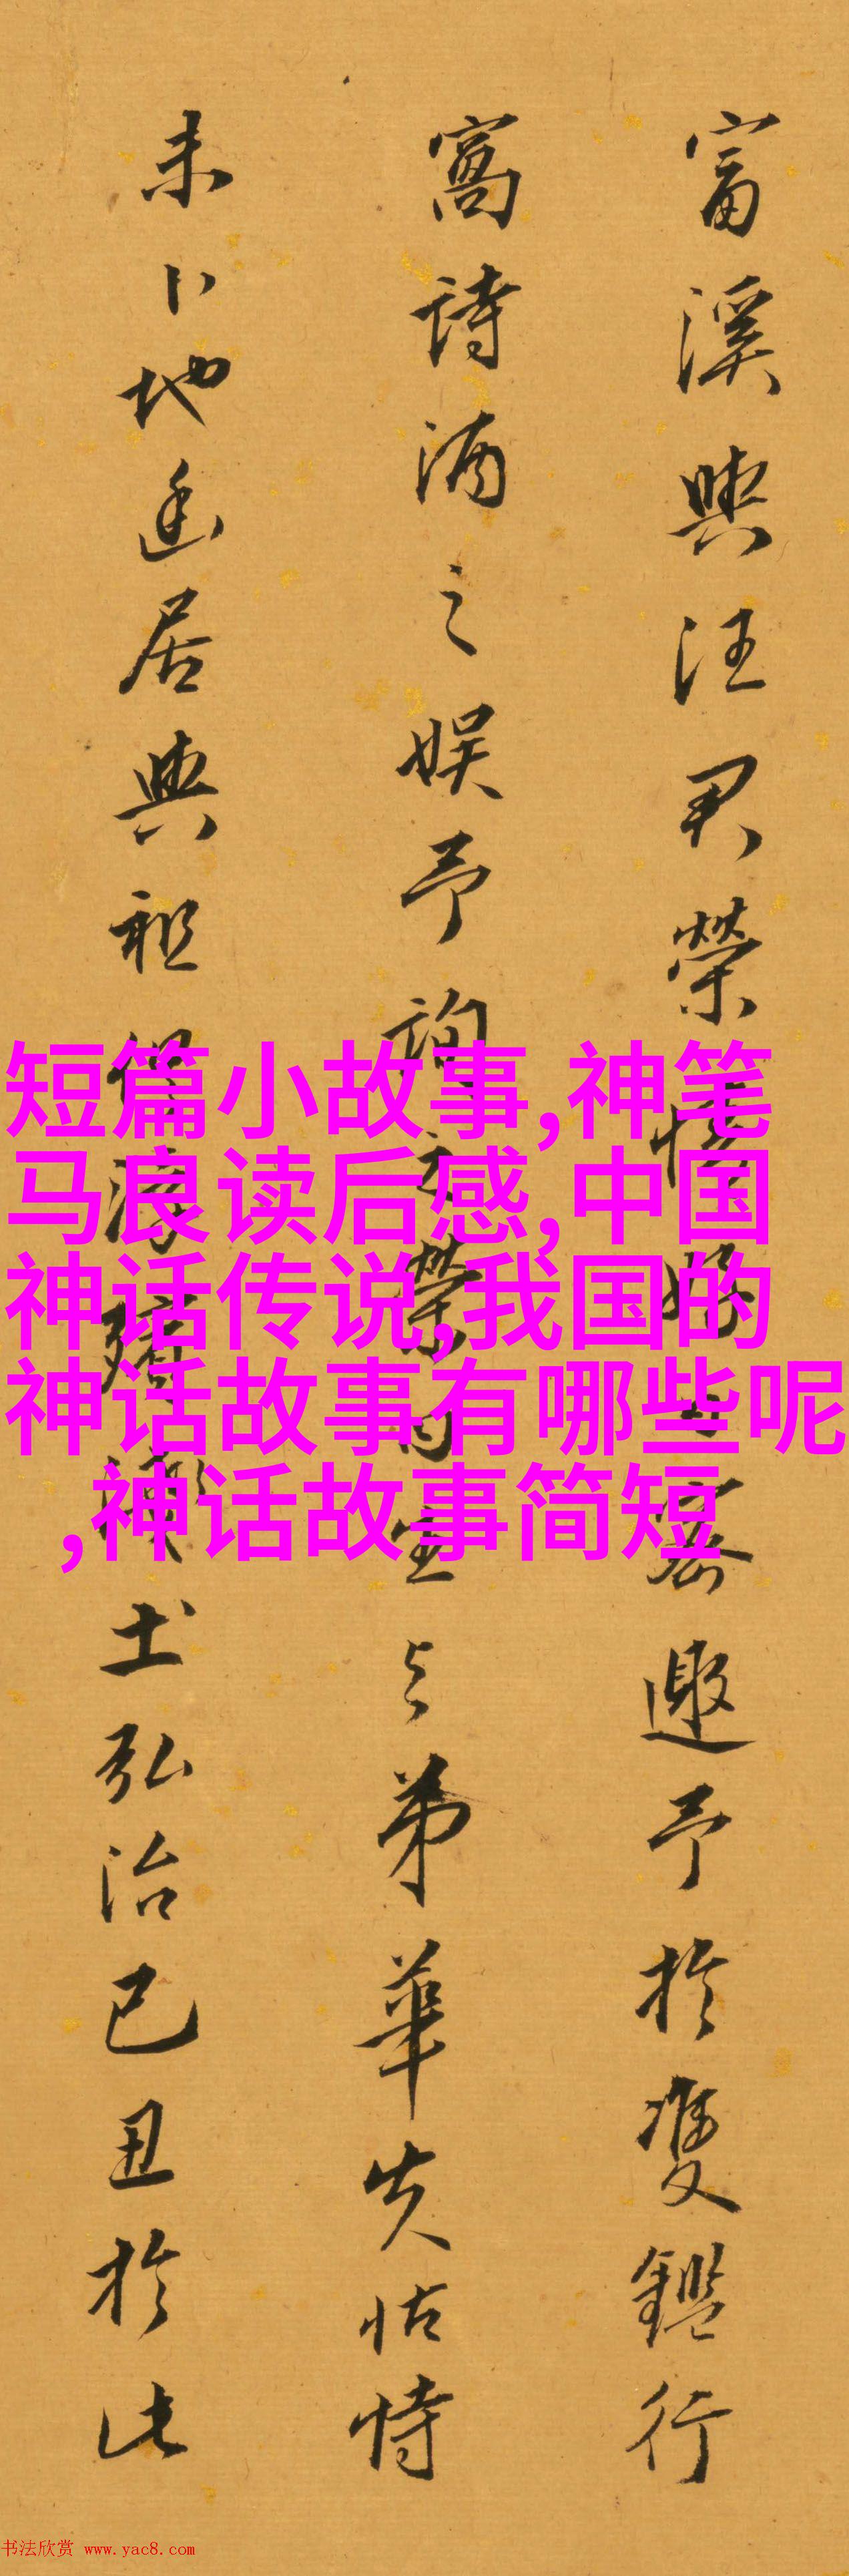 富溪與汪君榮
邀予於雙鑑行
寓詩酒之娱予詢
弟華失怙恃
未卜地遷居與祖
土弘治己丑於此
短篇小故事,神笔
马良读后感,中国
神话传说,我国的
神话故事有哪些呢
,神话故事简短
书法欣赏 www.yac8.com